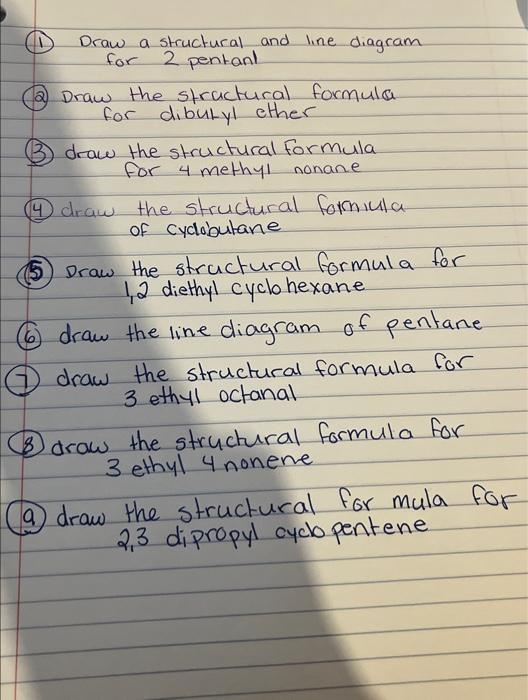 ① Draw a structural and line diagram
for 2 pentanl
② Draw the structural formula
for dibutyl ether
③ draw the structural formula
for 4 methyl nonane
④ draw the structural formula
of cyclobutane
⑤ Draw the structural formula for
1,2 diethyl cyclo hexane
⑥ draw the line diagram of pentane
⑦ draw the structural formula for
3 ethyl octanal
⑧ draw the structural formula for
3 ethyl 4 nonene
⑨ draw the structural for mula for
2,3 dipropyl cyclo pentene